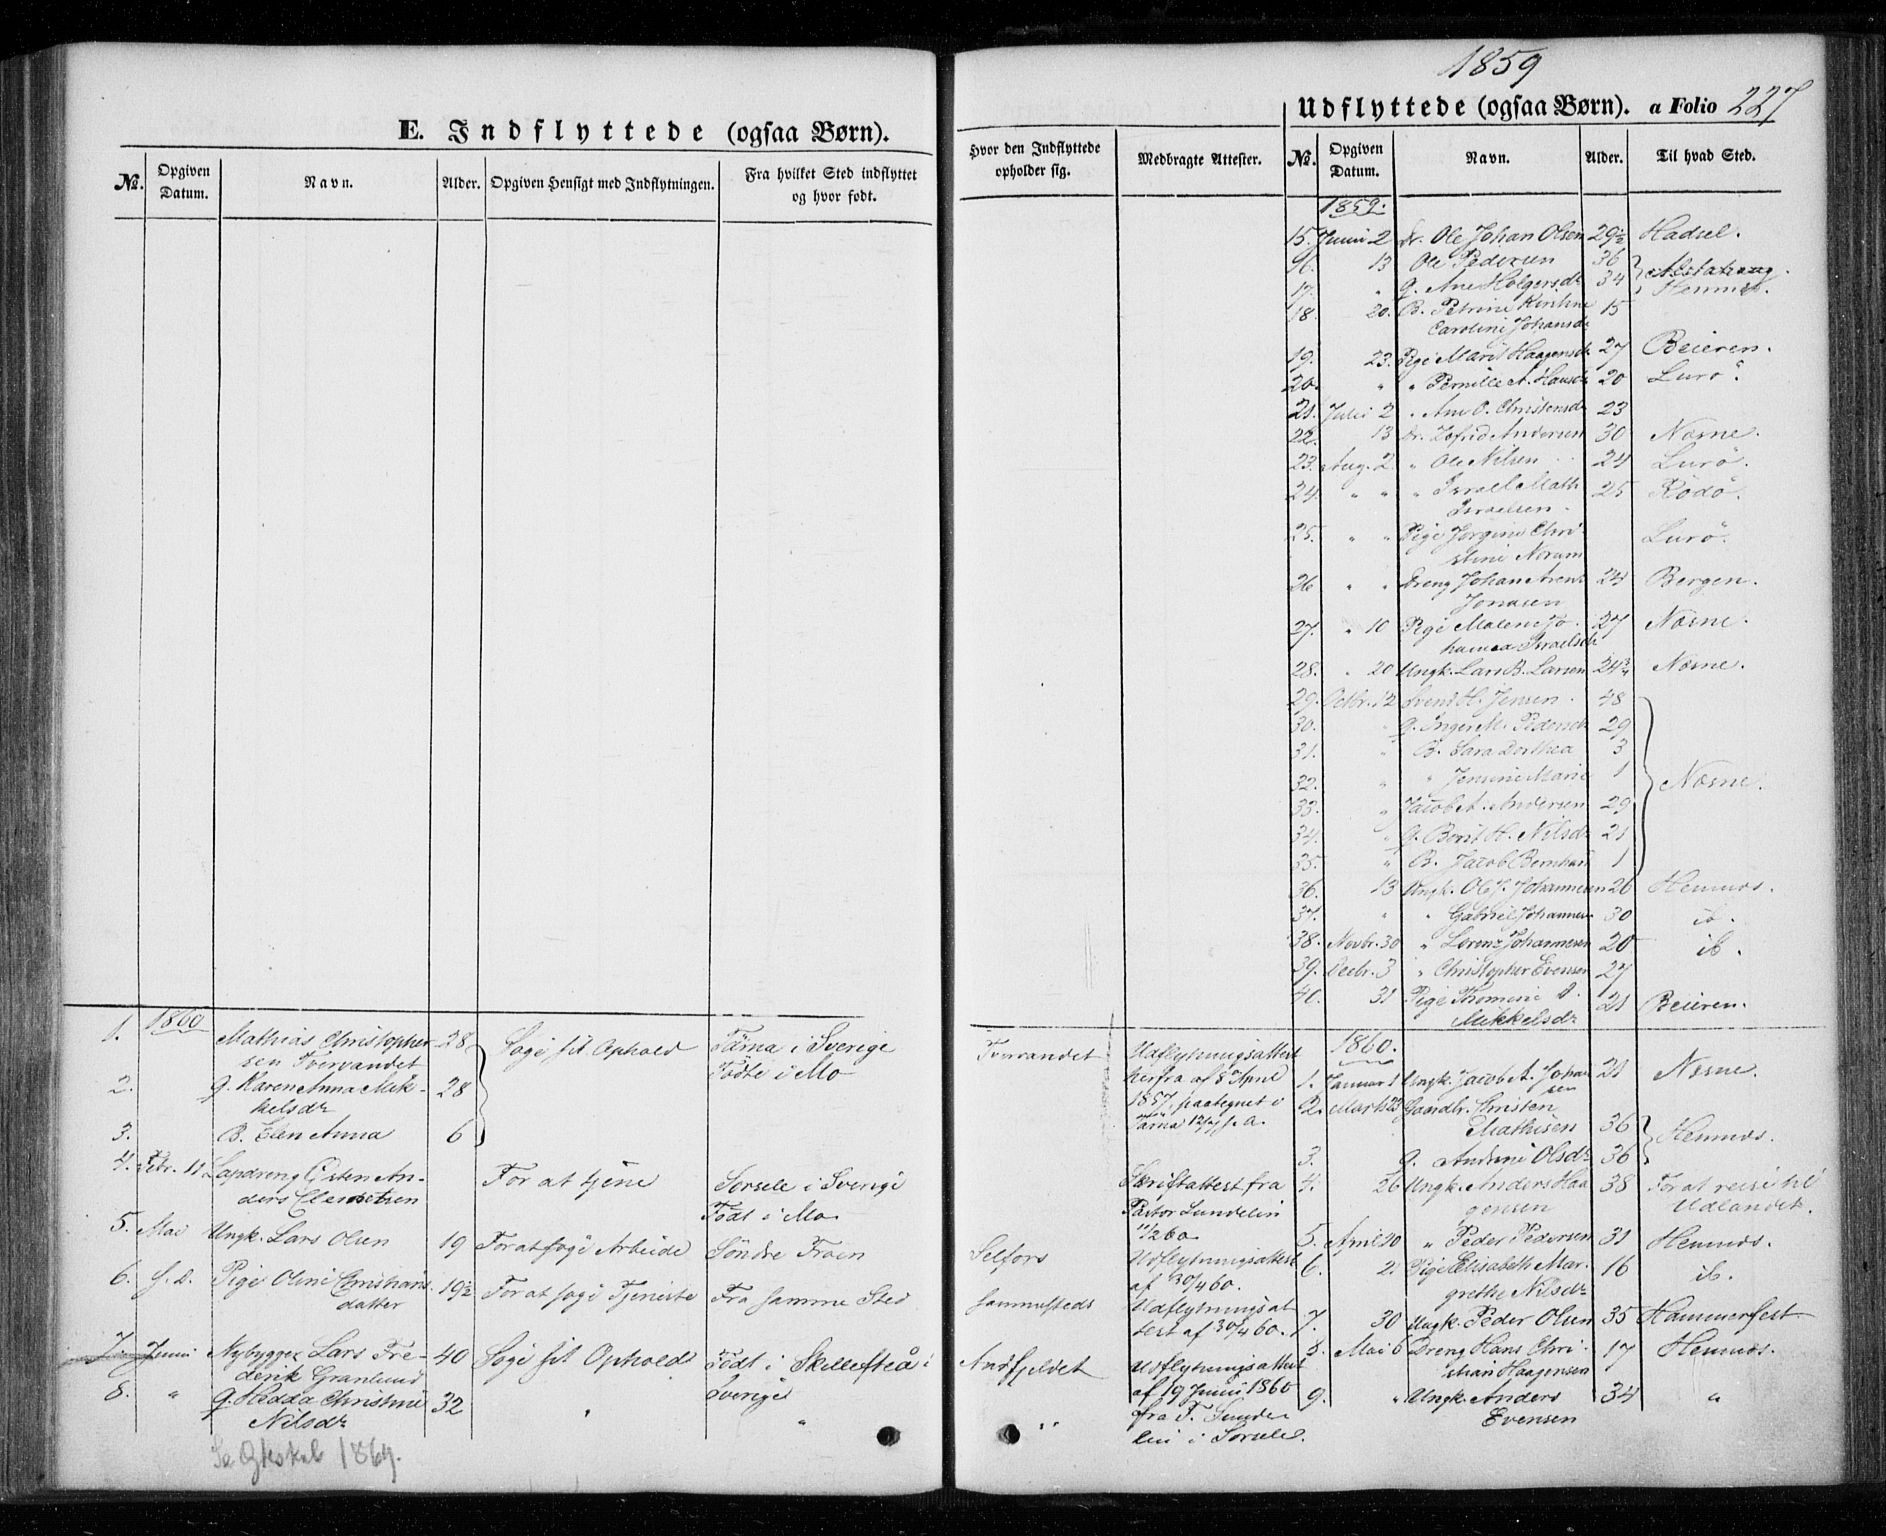 1859
E. Indflyttede (ogsaa Børn).
No.
Opgiven Datum.
Navn.
Alder.
Opgiven Hensigt med Indflytningen.
Fra hvilket Sted indflyttet og hvor født.
1860
1. Mathias Christophersen Tvervandet 28 Søge sit Ophold Tärna i Sverige Födte i Mo
2. g. Karen Anna Mikkelsdr 28
3. B. Elen Anna 6
4. Febr. 11 Lapdreng Østen Anders Clemetsen For at tjene Sorsele i Sverige Födt i Mo
5. Mai Ungk. Lars Olsen 19 For at søge Arbeide Söndre Froen
6. s. D. Pige Oline Christiansdatter 19½ For at søge Tjeneste Fra samme Sted
7. Juni Nybygger Lars Frederik Granlund 40 Søge sit Ophold Födt i Skellefteå i Sverige
8. " g. Hedda Christine Nilsdr 32 " "
Se Gteskab 1869.
Udflyttede (ogsaa Børn). a Folio 227
Hvor den Indflyttede opholder sig.
Medbragte Attester.
No.
Opgiven Datum.
Navn.
Alder.
Til hvad Sted.
Tvervandet Udflytningsattest herfra af 8 April 1857, paategnet i Tärna
Skriftattest fra Pastor Lundelin 11/2 60
Selfors Udflytningsattest af 30/4 60.
sammesteds Udflytningsattest af 30/4 60.
Andfjeldet Udflytningsattest af 19 Juni 1860 fra Sorsele.
1859.
15. Juni 2 Dr. Ole Johan Olsen 29½ Hadsel.
16. 13 Ole Pedersen 36 Alstahaug
17. " g. Ane Holgersdr 34 Hemnæs.
18. 20. B. Petrine Kirstine Caroline Johansdr 15
19. 23. Pige Marit Haagensdr 27 Beieren.
20. " " Pernille A. Hansdr 20 Lurö.
21. Juli 2 " Ane O. Christensdr 23
22. 13 Dr. Andersen 30 Næsne.
23. Aug. 2 " Ole Nilsen 24 Lurö.
24. " " " Israel Math. Israelsen 25 Rödö.
25. " " Pige Jorgine Christine Norum Lurö.
26 " " Dreng Johan Arent Jonasen 24 Bergen.
27. " 10 Pige Malene Johanna Israelsdr 27 Næsne.
28. " 20 Ungk. Lars B. Larsen 24¾ Næsne.
29. Octbr. 12 Svend H. Jensen 48
30. " g. Inger M. Pedersdr 29
31. " B. Sara Dorthea 3
32. " " Jensine Marie 1 Næsne.
33. " Jacob A. Andersen 29
34. " g. Berit H. Nilsdr 21
35. " B. Jacob Bernhard 1
36. 13 Ungk. Ole J. Johannesen 26 Hemnæs.
37. " " Gabriel Johannesen 30 ib.
38. Novbr. 30 " Lorenz Johannesen 20 ib.
39. Decbr. 3 " Christopher Evensen 27
40. 31 Pige Thomine Mikkelsdr 21 Beieren.
1860.
1. Januar 1 Ungk. Jacob A. Johansen 21 Næsne.
2. Marts 23 Gaardbr. Christen Mathisen 36
3. g. Andrine Olsdr 36 Hemnæs.
4. 26 Ungk. Anders Haagensen 38 For at reise til Udlandet.
5. April 10 " Peder Pedersen 31 Hemnæs.
6. 2. Pige Elisabeth Margrethe Nilsdr 16 ib.
7. 30 Ungk. Peder Olsen 35 Hammerfest
8. Mai 6 Dreng Hans Christian Haagensen 17 Hemnæs.
9. " Ungk. Anders Evensen 34 "